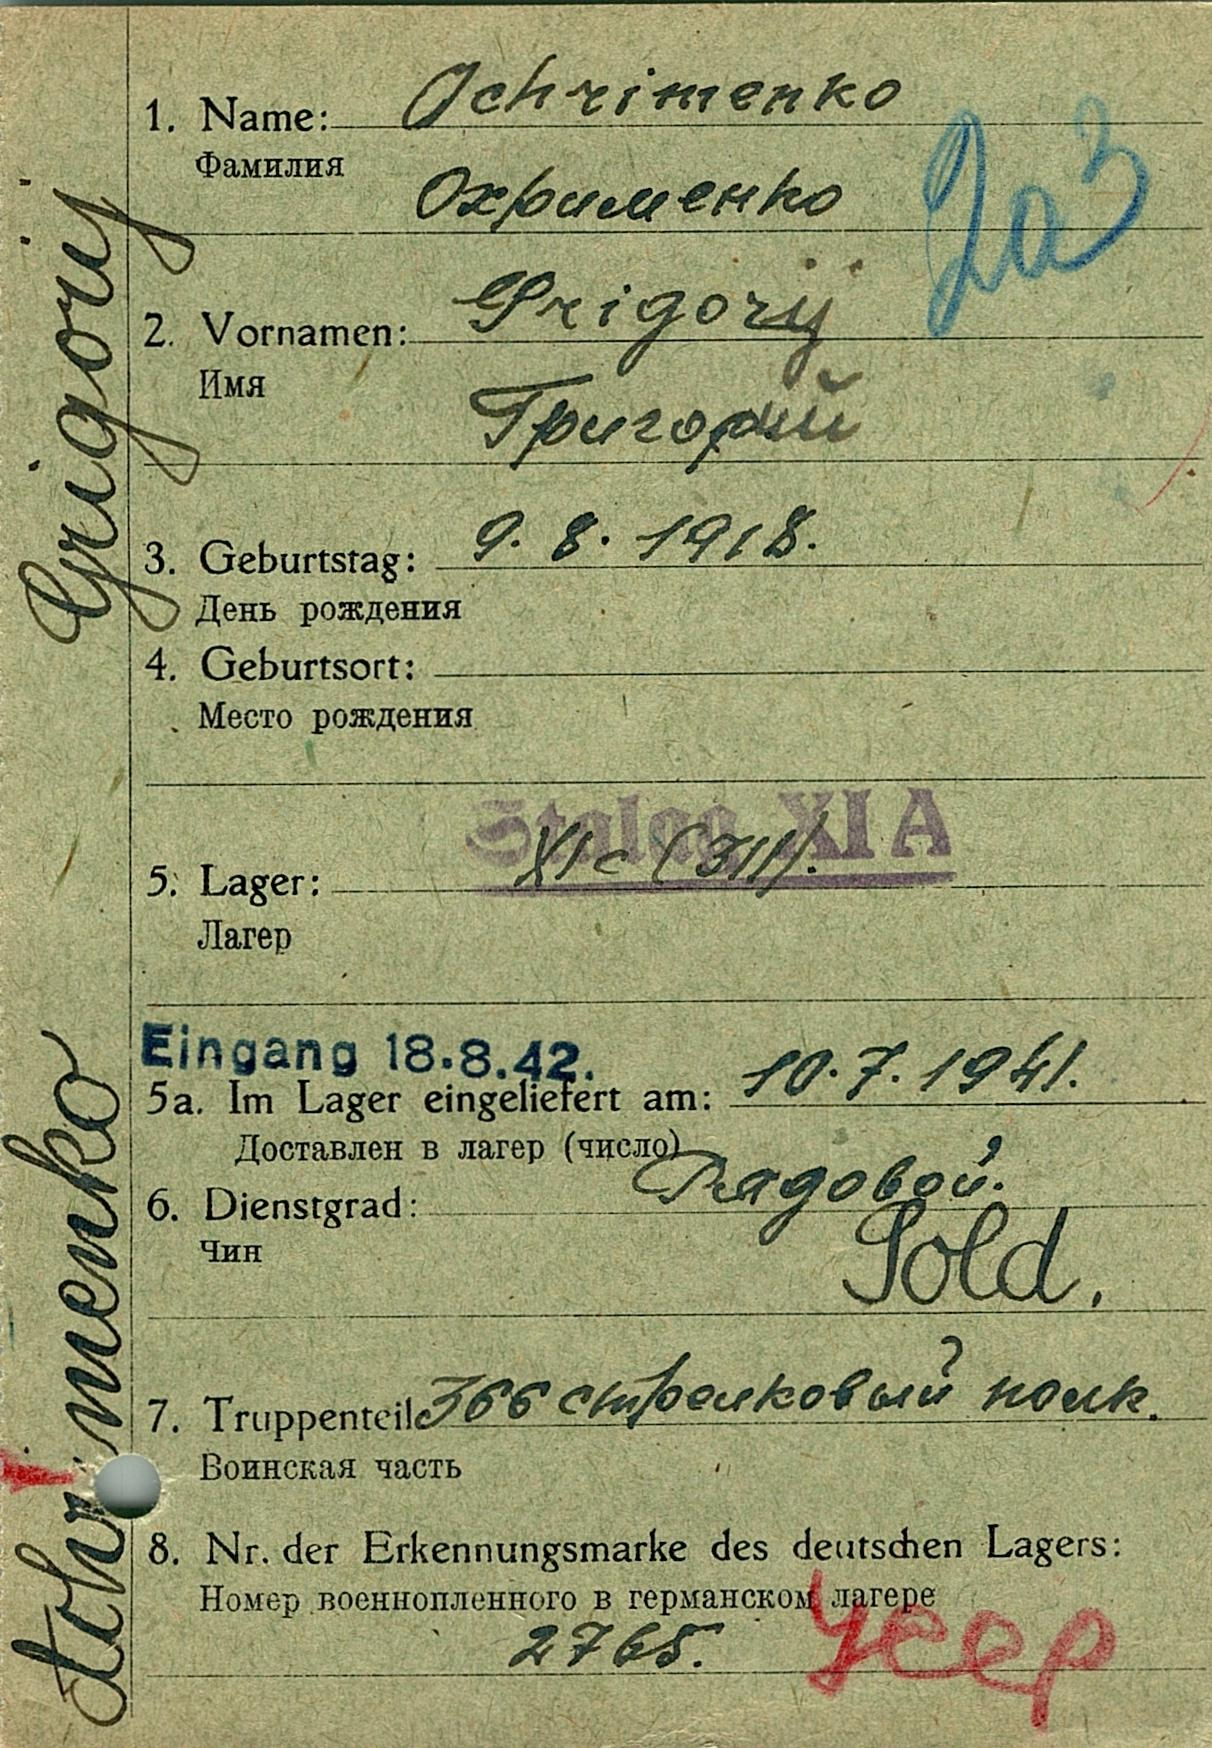 1. Name: Ochrimenko
Фамилия
Охрименко
2а3
2. Vornamen: Grigorij
Имя
Григорий
3. Geburtstag: 9. 8. 1918.
День рождения
4. Geburtsort:
Место рождения
Stalag XI A
5. Lager: XI c (311).
Лагер
Eingang 18.8.42.
5a. Im Lager eingeliefert am: 10.7.1941.
Доставлен в лагер (число)
6. Dienstgrad: Рядовой.
Чин
Sold.
7. Truppenteil 366 стрелковый полк.
Воинская часть
8. Nr. der Erkennungsmarke des deutschen Lagers:
Номер военнопленного в германском лагере
2765.
усер
Achrimenko Grigorij